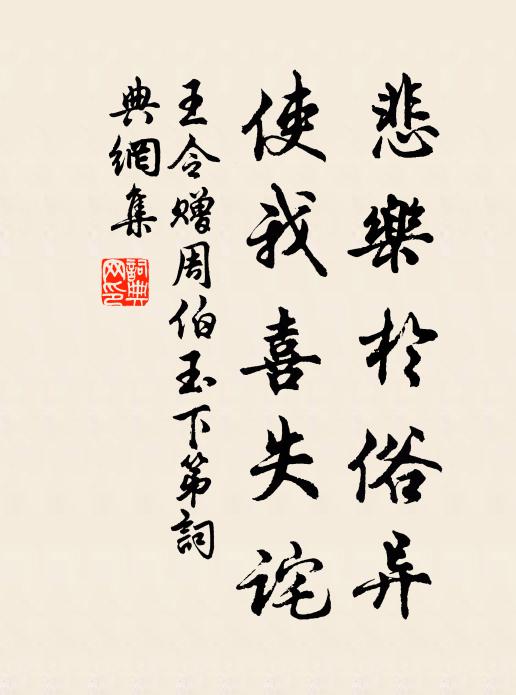 悲樂於俗异
使我喜失詫
王令赠周伯玉下第詞
典網集
詞典
网印